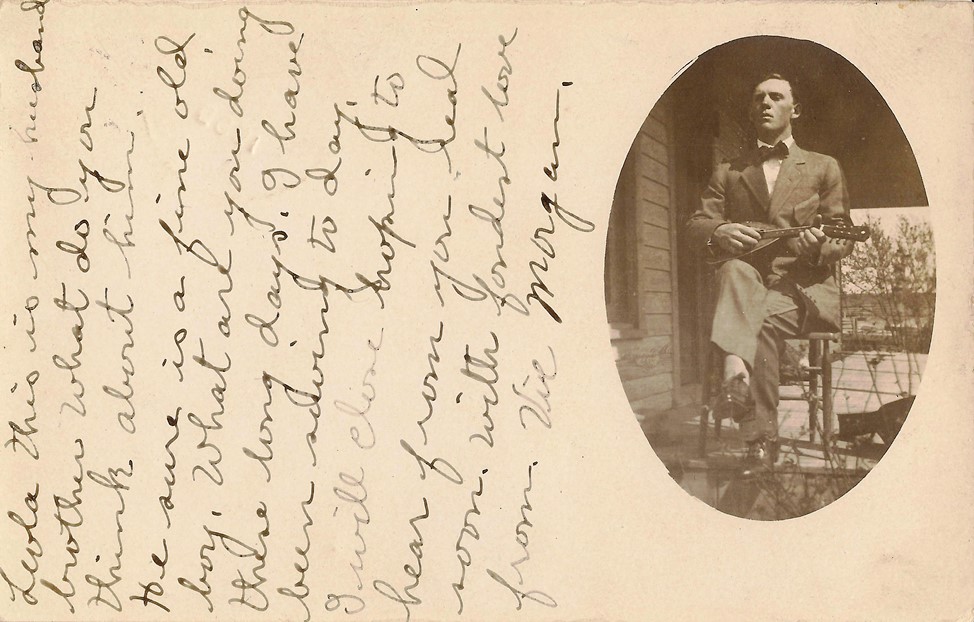 Leola this is my husband
brother What do you
think about him.
He sure is a fine old
boy. What are you doing
these long days. I have
been sewing to day.
I will close hoping to
hear from you real
soon. With fondest love
from. Vic Morgan.